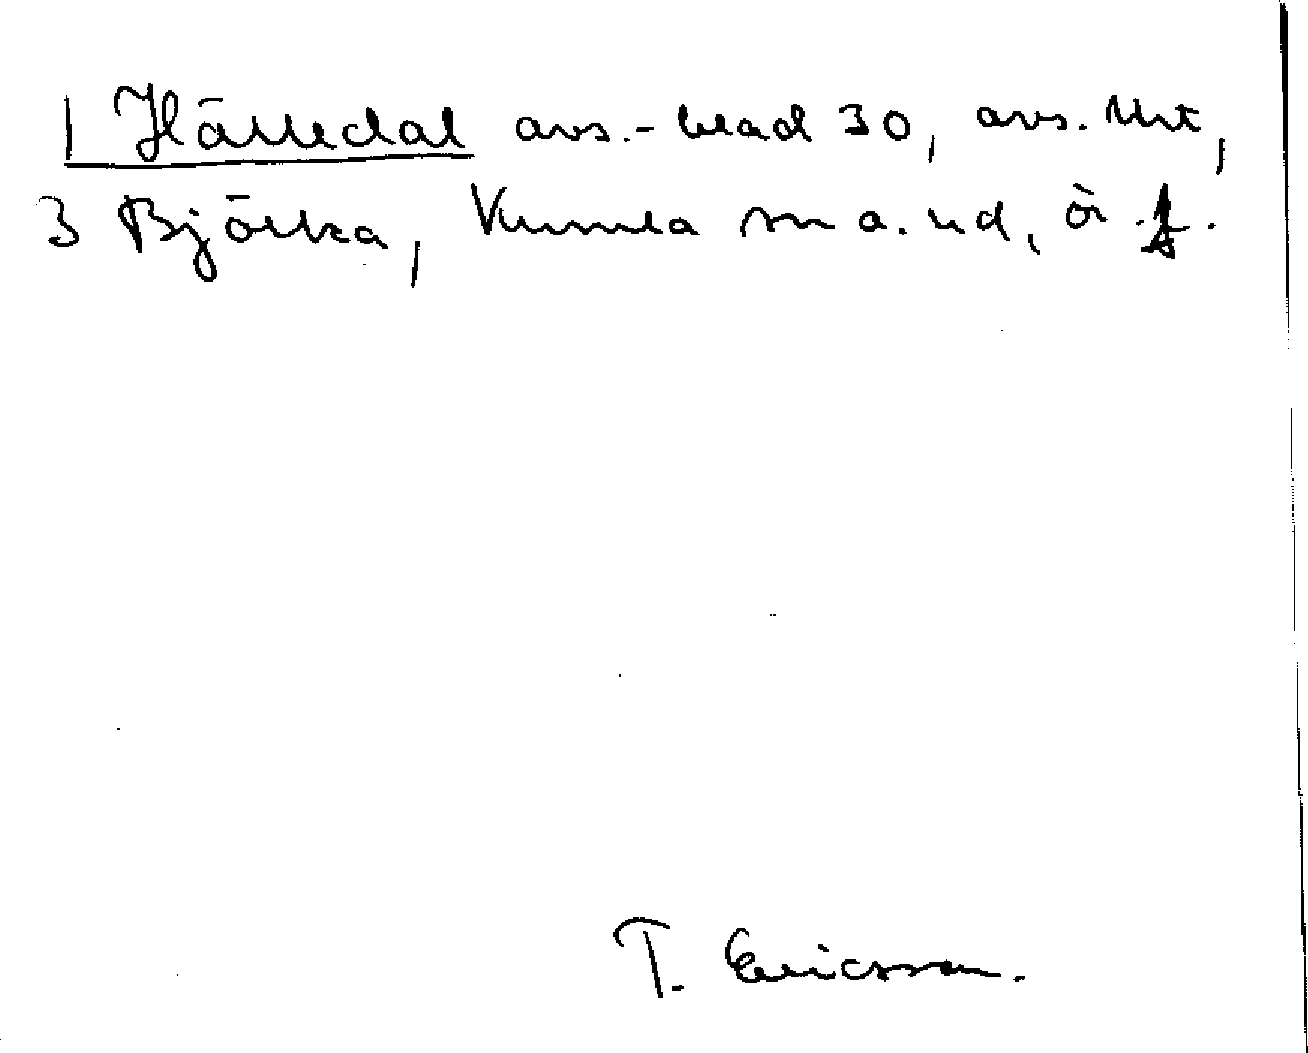 1 Hälledal avs.-blad 30, avs. Mt,
3 Björka, Kumla sn a. ud, ör f.
T. Ericsson.